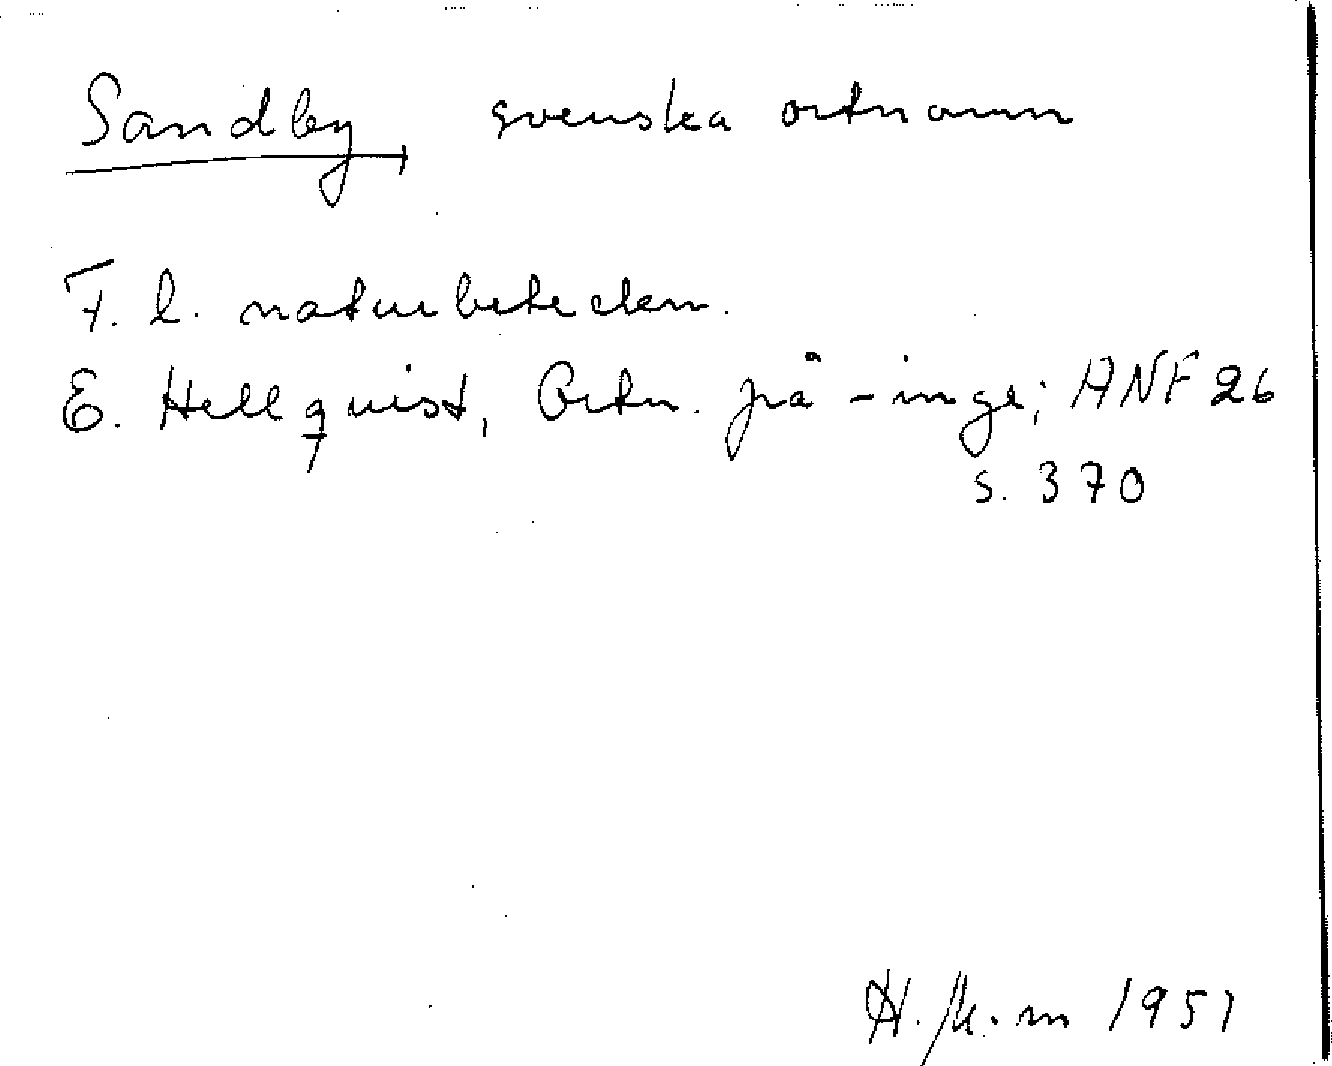 Sandby svenska ortnamn
F. l. naturbeteckn.
E. Hellquist, Ortn. på -inge; ANF 26
s. 370
1951